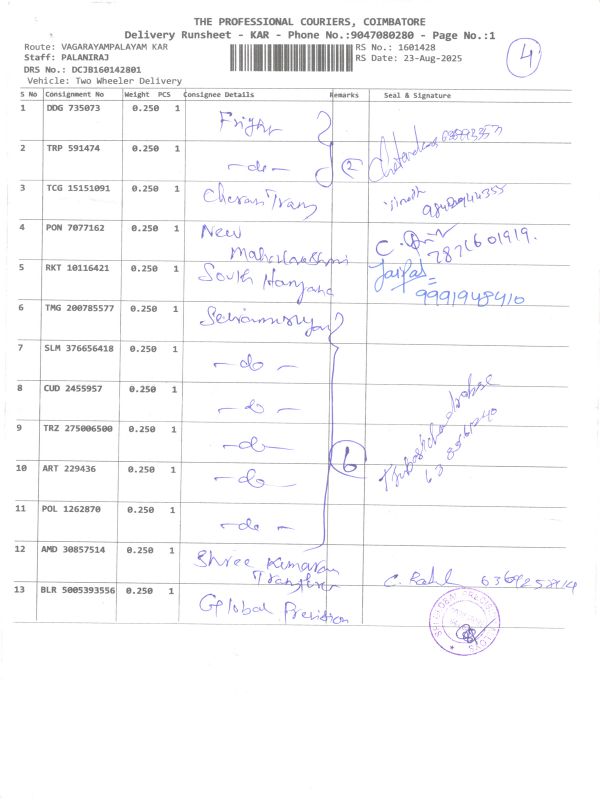 THE PROFESSIONAL COURIERS, COIMBATORE
Delivery Runsheet - KAR - Phone No.:9047080280 - Page No.:1
Route: VAGARAYAMPALAYAM KAR
RS No.: 1601428
Staff: PALANIRAJ
RS Date: 23-Aug-2025
DRS No.: DCJB160142801
Vehicle: Two Wheeler Delivery
4
S No Consignment No Weight PCS Consignee Details Remarks Seal & Signature
1 DDG 735073 0.250 1 Fright
2 TRP 591474 0.250 1 -do- 2
3 TCG 15151091 0.250 1 Cheran Trans
4 PON 7077162 0.250 1 New Mahalakshmi C. 7871601919.
5 RKT 10116421 0.250 1 South Haryana Jaipal 9991948410
6 TMG 200785577 0.250 1
7 SLM 376656418 0.250 1 -do-
8 CUD 2455957 0.250 1 -do-
9 TRZ 275006500 0.250 1 -do- 6
10 ART 229436 0.250 1 -do-
11 POL 1262870 0.250 1 -do-
12 AMD 30857514 0.250 1 Shree Kumaran C. Rahul
13 BLR 5005393556 0.250 1 Global Precision